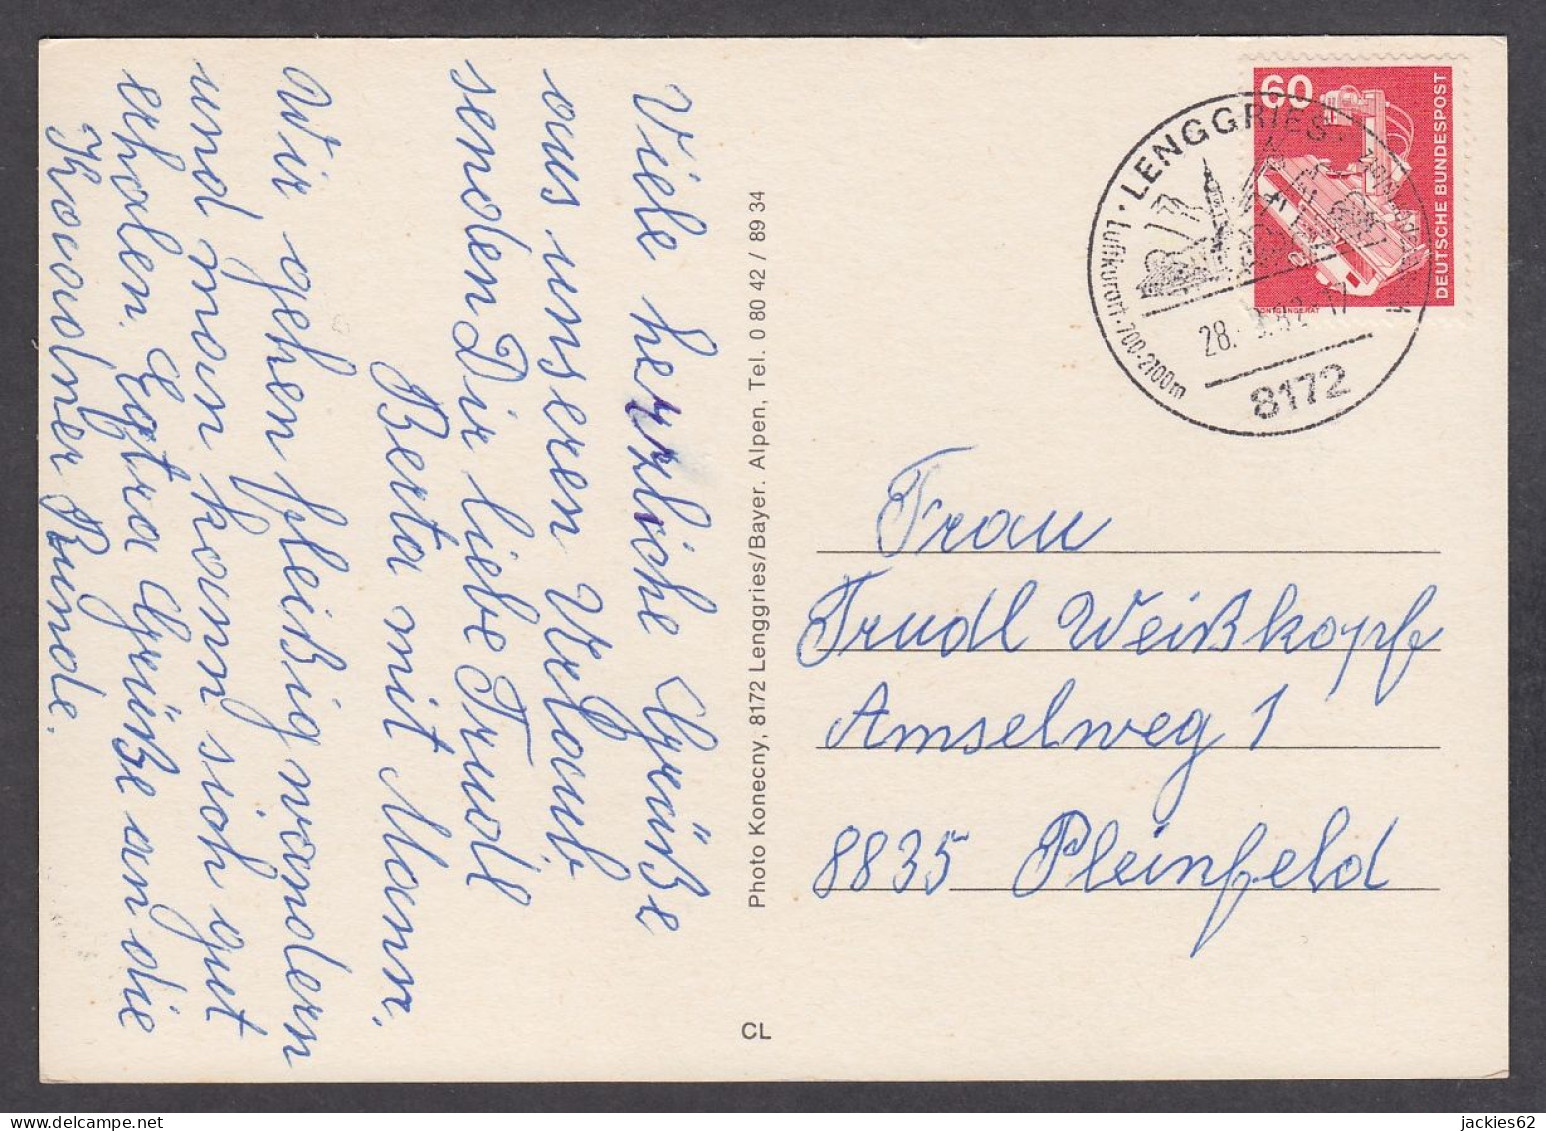 Viele herzliche Grüße
aus unseren Urlaub
senden Dir liebe Trudl
Berta mit Mann.
Wir gehen fleißig wandern
und man kann sich gut
erholen. Extra Grüße an die
Runde.
Photo Konecny, 8172 Lenggries/Bayer. Alpen, Tel. 0 80 42 / 89 34
CL
60
DEUTSCHE BUNDESPOST
RÖNTGENGERÄT
LENGGRIES
Luftkurort · 700-2100m
28. 82-17
8172
Frau
Trudl Weißkopf
Amselweg 1
8835 Pleinfeld
jackies62